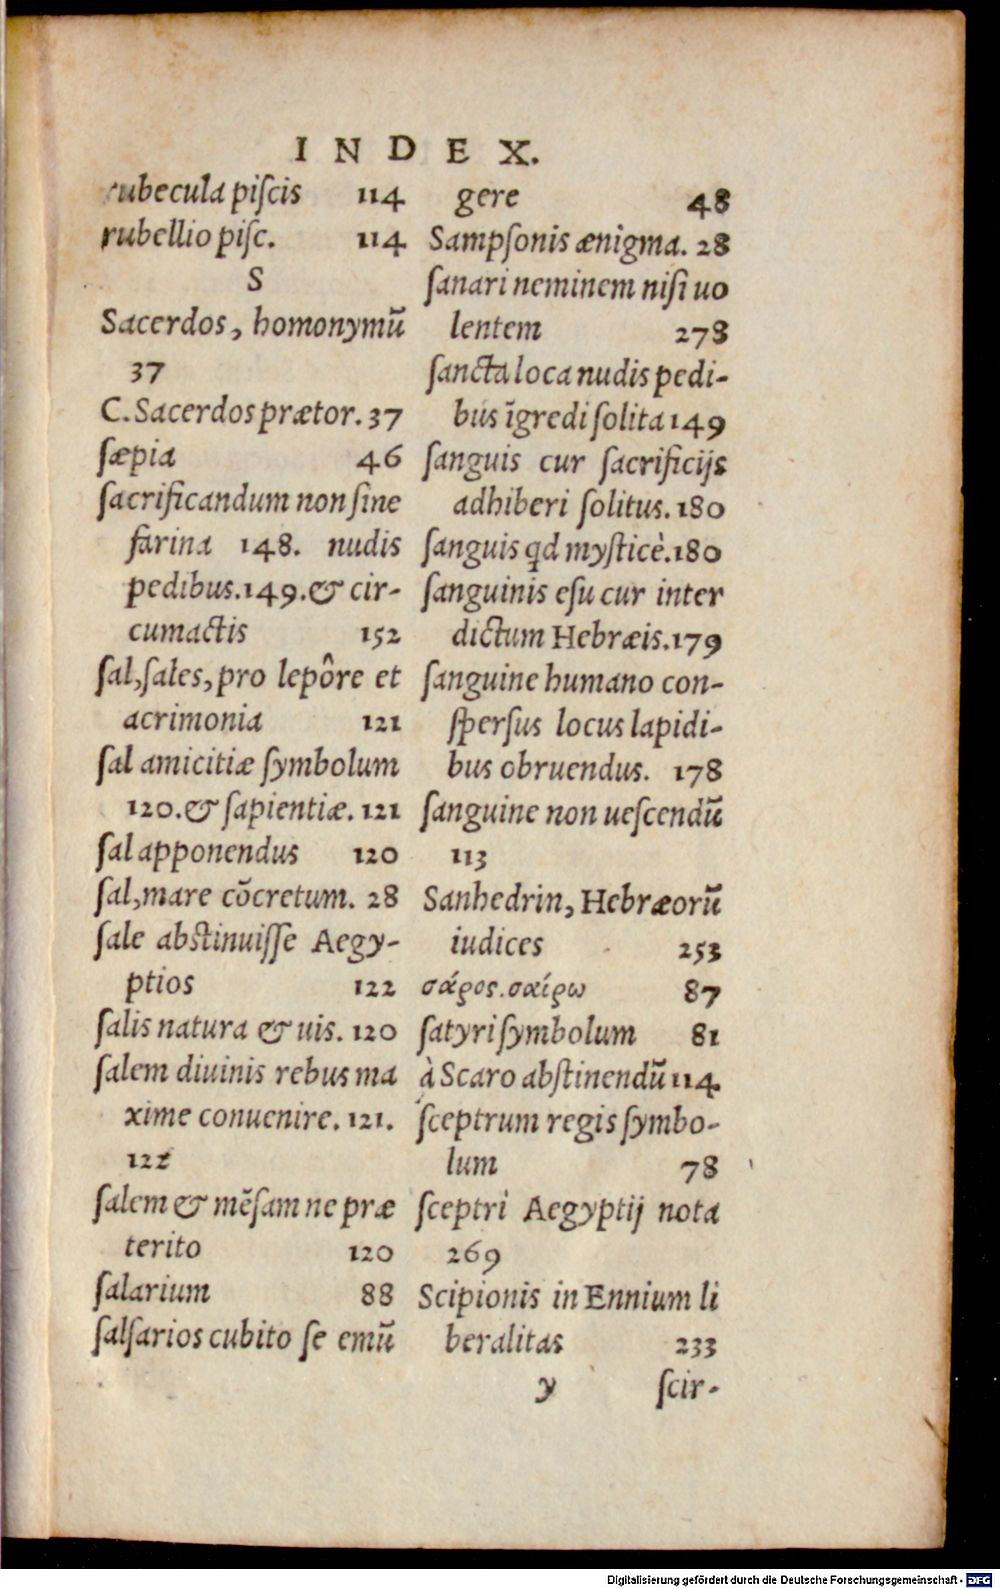 INDEX.
rubecula piſcis 114
rubellio piſc. 114
S
Sacerdos, homonymũ
37
C. Sacerdos prætor. 37
ſæpia 46
ſacrificandum non ſine
farina 148. nudis
pedibus. 149. & cir-
cumactis 152
ſal, ſales, pro lepôre et
acrimonia 121
ſal amicitiæ ſymbolum
120. & ſapientiæ. 121
ſal apponendus 120
ſal, mare cõcretum. 28
ſale abſtinuiſſe Aegy-
ptios 122
ſalis natura & uis. 120
ſalem diuinis rebus ma
xime conuenire. 121.
122
ſalem & mẽſam ne præ
terito 120
ſalarium 88
ſalſarios cubito ſe emũ
gere 48
Sampſonis ænigma. 28
ſanari neminem niſi uo
lentem 278
ſancta loca nudis pedi-
bus ĩgredi ſolita 149
ſanguis cur ſacrificijs
adhiberi ſolitus. 180
ſanguis qd myſticè. 180
ſanguinis eſu cur inter
dictum Hebræis. 179
ſanguine humano con-
ſperſus locus lapidi-
bus obruendus. 178
ſanguine non ueſcendũ
113
Sanhedrin, Hebræorũ
iudices 253
σάρος. σαίρω 87
ſatyri ſymbolum 81
à Scaro abſtinendũ 114
ſceptrum regis ſymbo-
lum 78
ſceptri Aegyptij nota
269
Scipionis in Ennium li
beralitas 233
y ſcir-
Digitalisierung gefördert durch die Deutsche Forschungsgemeinschaft - DFG